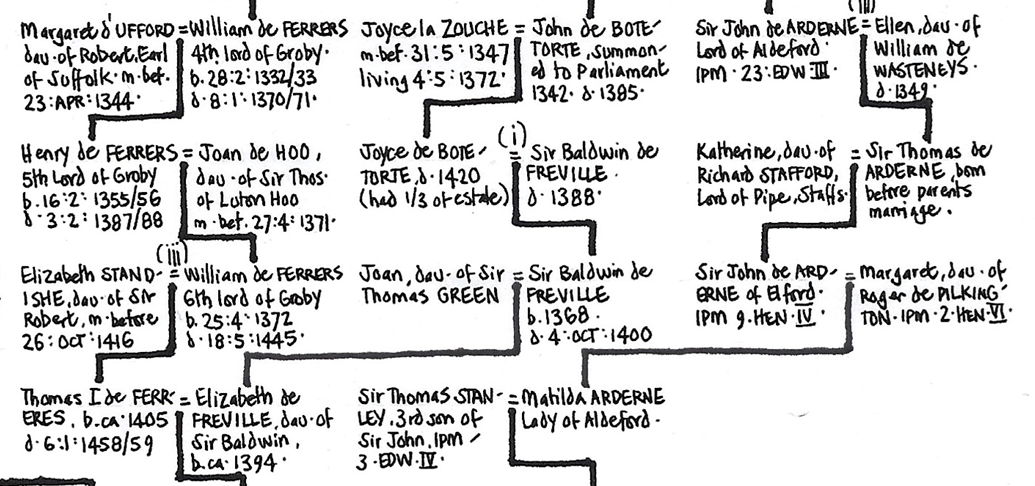 (iii)
Margaret d'UFFORD = William de FERRERS
dau. of Robert, Earl 4th lord of Groby.
of Suffolk. m. bef. b. 28:2:1332/33
23:APR:1344. d. 8:1:1370/71.
Joyce la ZOUCHE = John de BOTE-
m. bef. 31:5:1347 TORTE, summon-
living 4:5:1372. ed to Parliament
1342. d. 1385.
Sir John de ARDERNE = Ellen, dau. of
Lord of Aldeford. William de
IPM. 23:EDW III. WASTENEYS.
d. 1349.
Henry de FERRERS = Joan de HOO,
5th Lord of Groby dau. of Sir Thos.
b. 16:2:1355/56 of Luton Hoo
d. 3:2:1387/88 m. bef. 27:4:1371.
(i)
Joyce de BOTE- = Sir Baldwin de
TORTE, d. 1420 FREVILLE.
(had 1/3 of estate) d. 1388.
Katherine, dau. of = Sir Thomas de
Richard STAFFORD, ARDERNE, born
Lord of Pipe, Staffs. before parents
marriage.
(iii)
Elizabeth STAND- = William de FERRERS
ISHE, dau. of Sir 6th lord of Groby
Robert, m. before b. 25:4:1372
26:OCT:1416 d. 18:5:1445.
Joan, dau. of Sir = Sir Baldwin de
Thomas GREEN FREVILLE
b. 1368.
d. 4:OCT:1400
Sir John de ARD- = Margaret, dau. of
ERNE of Elford. Roger de PILKING-
IPM 9. HEN. IV. TON. IPM. 2. HEN. VI.
Thomas I de FERR- = Elizabeth de
ERES, b. ca. 1405 FREVILLE, dau. of
d. 6:1:1458/59 Sir Baldwin,
b. ca. 1394.
Sir Thomas STAN- = Matilda ARDERNE
LEY, 3rd son of Lady of Aldeford.
Sir John, IPM
3. EDW. IV.